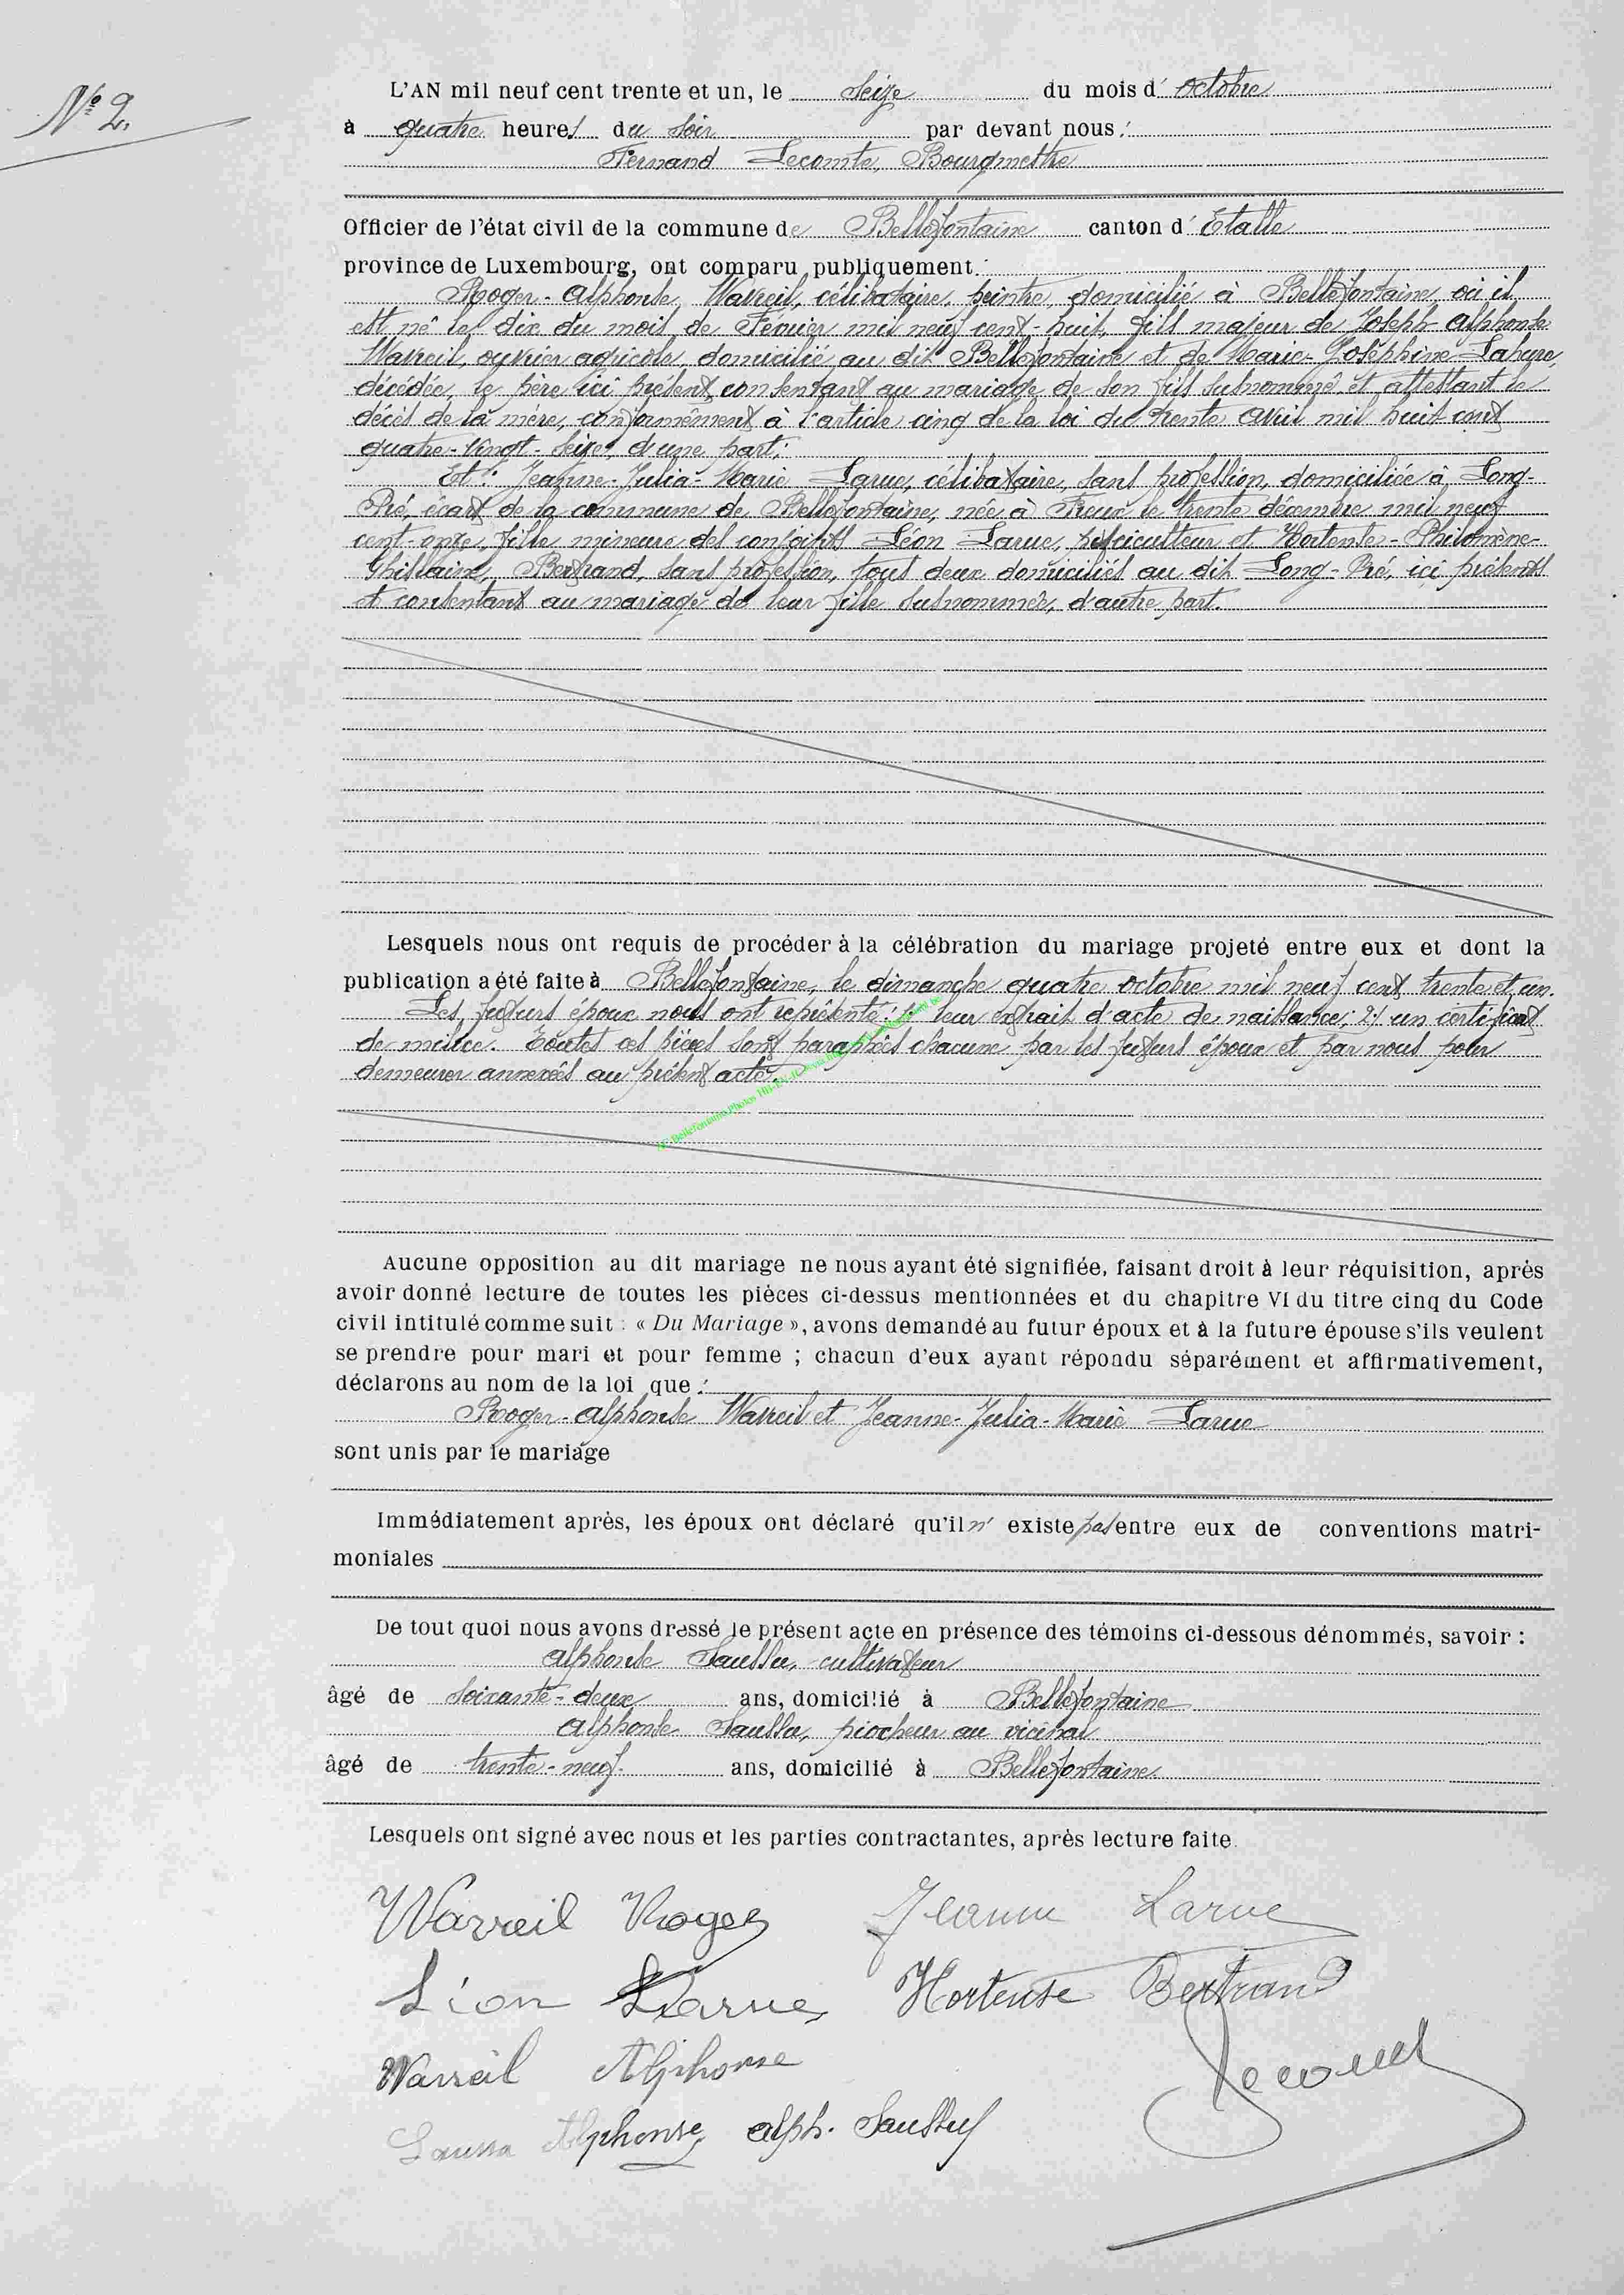 N° 2.
L'AN mil neuf cent trente et un, le Seize du mois d' octobre
à quatre heures du soir par devant nous :
Fernand Lecomte, Bourgmestre
Officier de l'état civil de la commune de Bellefontaine canton d' Etalle
province de Luxembourg, ont comparu publiquement :
Roger-Alphonse Warreil, célibataire, peintre, domicilié à Bellefontaine où il
est né le dix du mois de Février mil neuf cent-huit, fils majeur de Joseph-Alphonse
Warreil, ouvrier agricole, domicilié au dit Bellefontaine et de Marie-Joséphine Lahure,
décédée, le père ici présent, consentant au mariage de son fils susnommé et attestant le
décès de la mère, conformément à l'article cinq de la loi du trente avril mil huit cent
quatre-vingt-seize, d'une part ;
Et : Jeanne-Julia-Marie Larue, célibataire, sans profession, domiciliée à Long-
Pré, écart de la commune de Bellefontaine, née à Freux le trente décembre mil neuf
cent-onze, fille mineure des conjoints Léon Larue, pisciculteur et Hortense-Philomène-
Ghislaine Bertrand, sans profession, tous deux domiciliés au dit Long-Pré, ici présents
et consentant au mariage de leur fille susnommée, d'autre part.
Lesquels nous ont requis de procéder à la célébration du mariage projeté entre eux et dont la
publication a été faite à Bellefontaine, le dimanche quatre octobre mil neuf cent trente et un.
Les futurs époux nous ont représenté : 1) leur extrait d'acte de naissance ; 2) un certificat
de milice. Toutes ces pièces sont paraphées chacune par les futurs époux et par nous pour
demeurer annexées au présent acte.
Bellefontaine Photos
Aucune opposition au dit mariage ne nous ayant été signifiée, faisant droit à leur réquisition, après
avoir donné lecture de toutes les pièces ci-dessus mentionnées et du chapitre VI du titre cinq du Code
civil intitulé comme suit : « Du Mariage », avons demandé au futur époux et à la future épouse s'ils veulent
se prendre pour mari et pour femme ; chacun d'eux ayant répondu séparément et affirmativement,
déclarons au nom de la loi que :
Roger-Alphonse Warreil et Jeanne-Julia-Marie Larue
sont unis par le mariage
Immédiatement après, les époux ont déclaré qu'il n' existe pas entre eux de conventions matri-
moniales
De tout quoi nous avons dressé le présent acte en présence des témoins ci-dessous dénommés, savoir :
Alphonse Saussu, cultivateur
âgé de soixante-deux ans, domicilié à Bellefontaine
Alphonse Saussu, piocheur au vicinal
âgé de trente-neuf ans, domicilié à Bellefontaine
Lesquels ont signé avec nous et les parties contractantes, après lecture faite.
Warreil Roger Jeanne Larue
Léon Larue Hortense Bertrand
Warreil Alphonse Lecomte
Saussu Alphonse Alph. Saussu